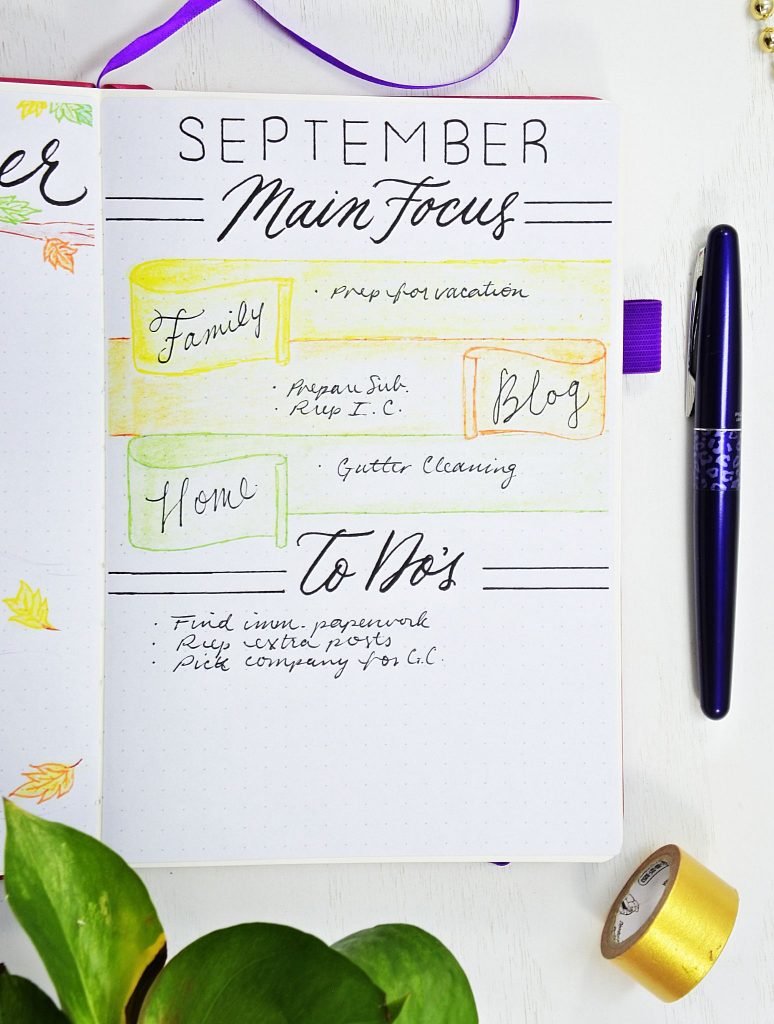 er
SEPTEMBER
Main Focus
Family
· Prep for vacation
· Prepare Sub.
· Prep I.C.
Blog
Home
· Gutter Cleaning
To Do's
· Find imm. paperwork
· Prep extra posts
· Pick company for G.C.